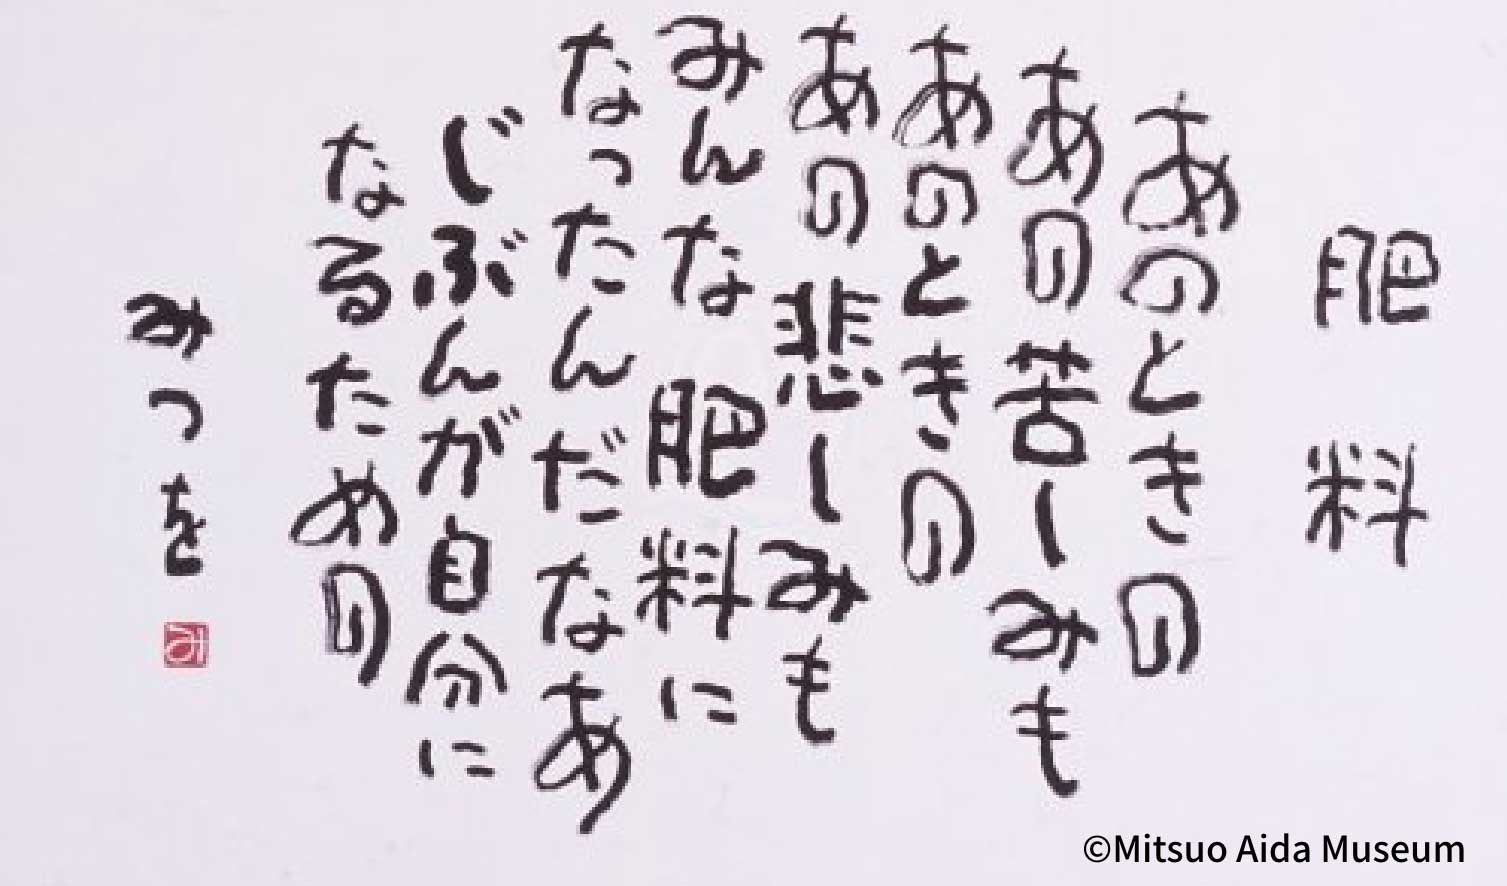 肥料
あのときの
あの苦しみも
あのときの
あの悲しみも
みんな肥料に
なったんだなあ
じぶんが自分に
なるための
みつを
み
©Mitsuo Aida Museum